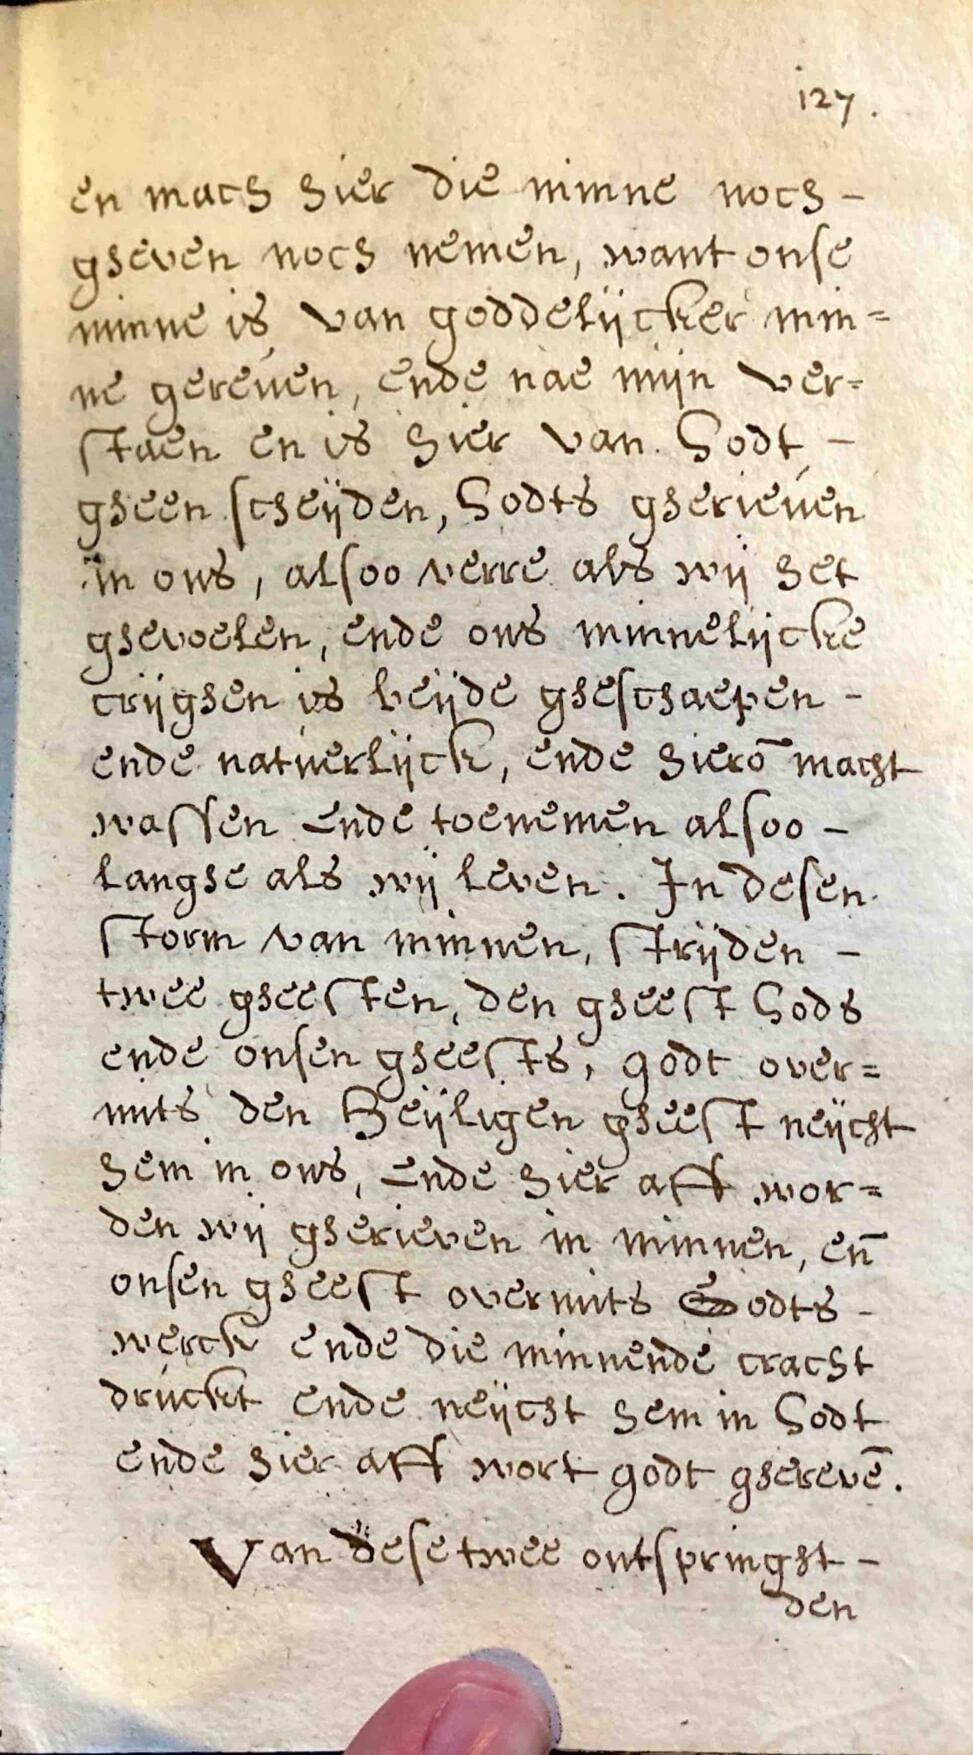 127.
en mach hier die minne noch -
gheven noch nemen, want onse
minne is van goddelijcker min=
ne gereven, ende nae mijn ver=
staen en is hier van Godt -
gheen scheijden, Godts gherieven
in ons, alsoo verre als wij het
ghevoelen, ende ons minnelijcke
crijghen is beijde gheschaepen -
ende natuerlijck, ende hierō macht
wassen ende toenemen alsoo -
langhe als wij leven. In desen
storm van minnen, strijden -
twee gheesten, den gheest Gods
ende onsen gheests, godt over=
mits den Heijligen gheest neijcht
hem in ons, ende hier aff wor=
den wij gherieven in minnen, en̄
onsen gheest overmits Godts -
werck ende die minnende cracht
druckt ende neijcht hem in Godt
ende hier aff wort godt gherevē.
Van dese twee ontspringht -
den